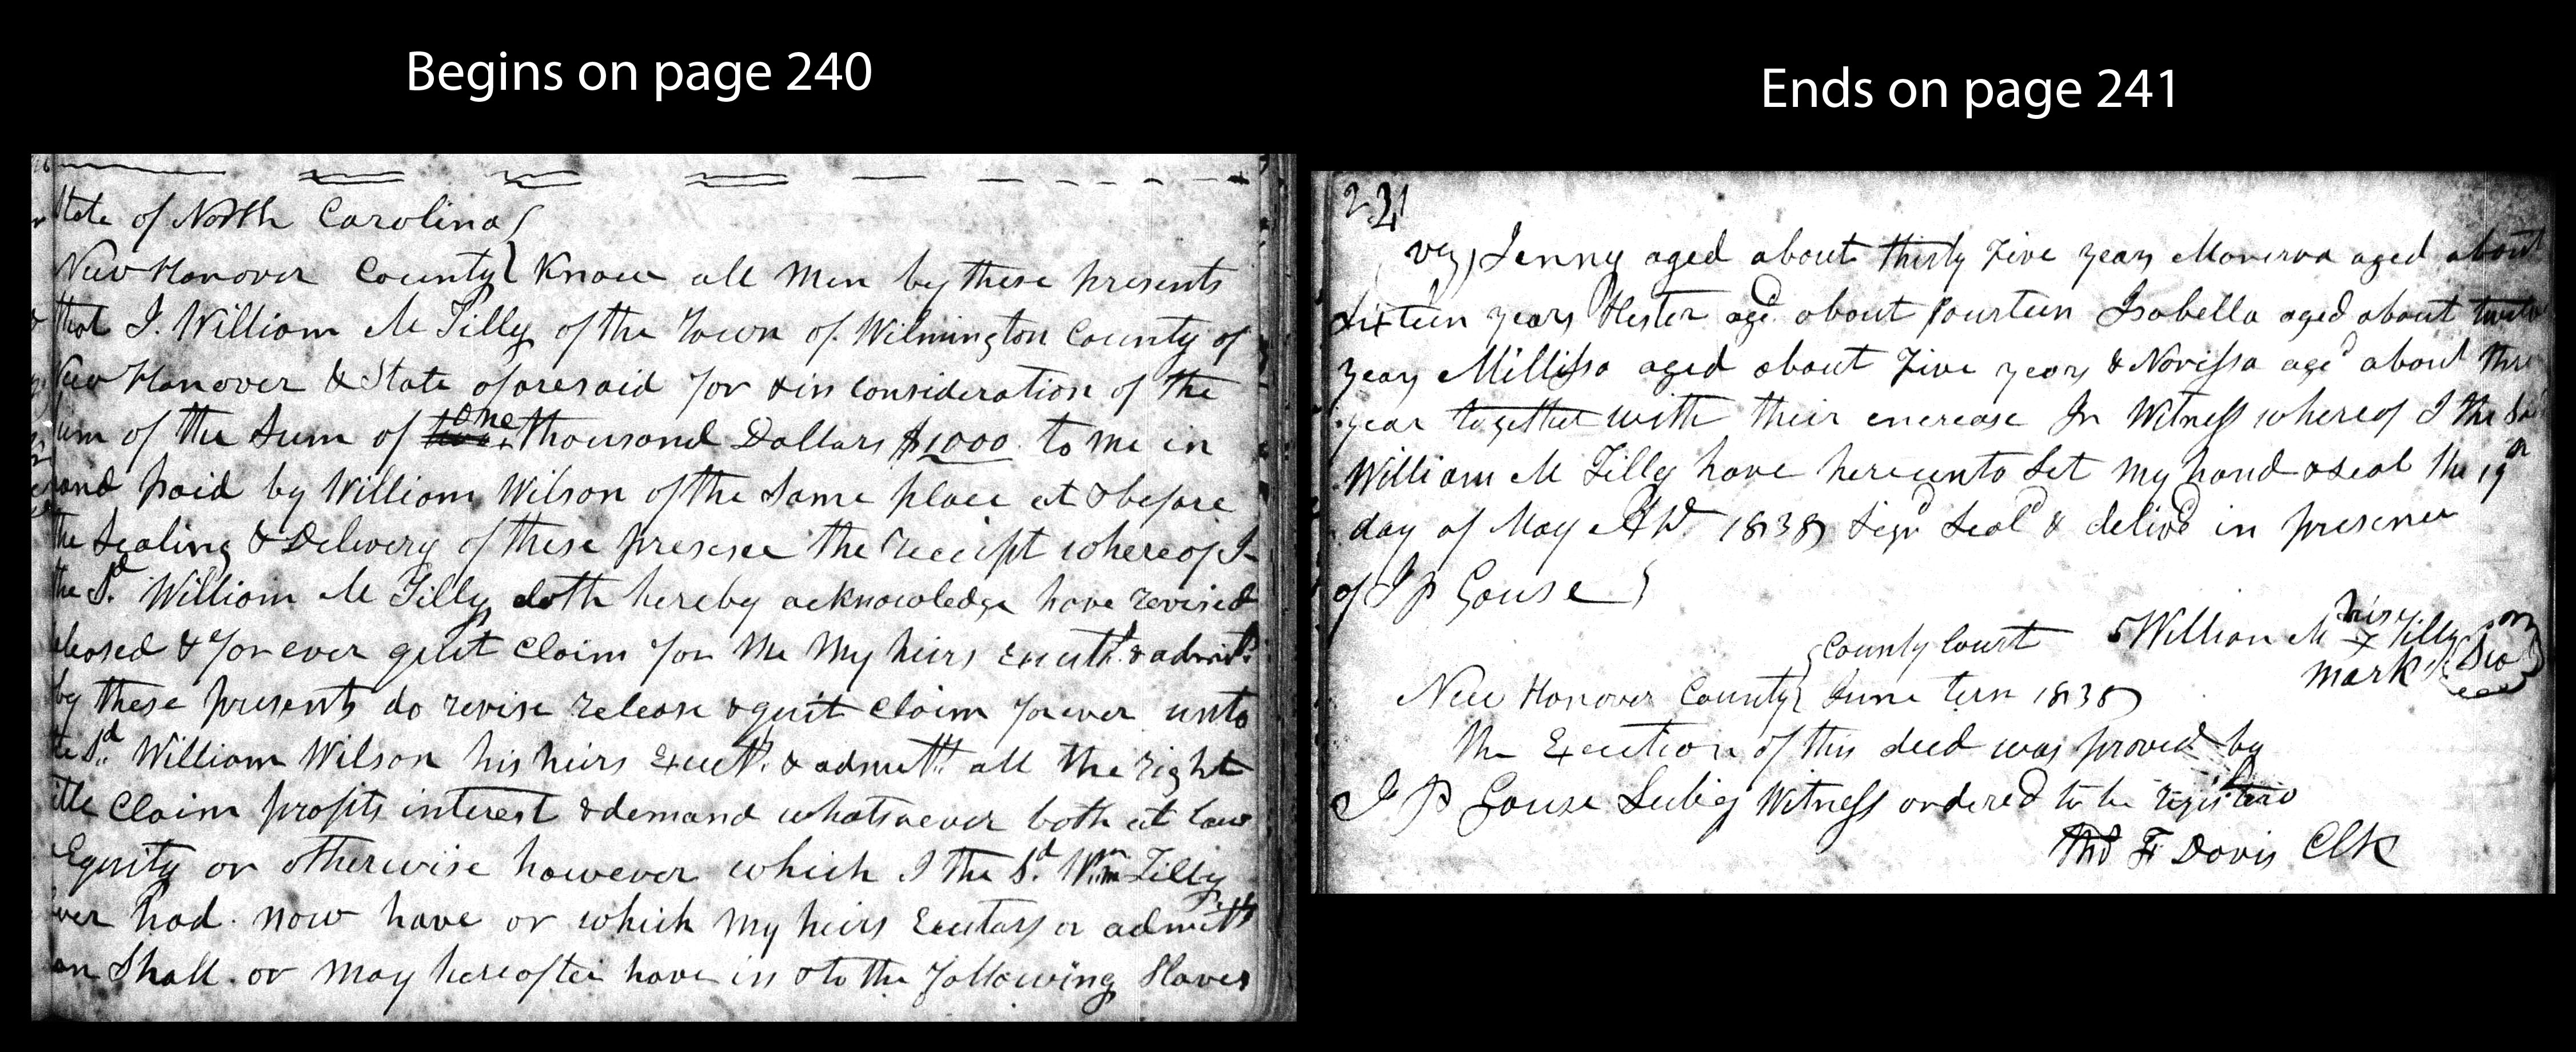 Begins on page 240
State of North Carolina
New Hanover County Know all men by these presents
that I. William M Tilly of the Town of Wilmington County of
New Hanover & State aforesaid for & in consideration of the
sum of the Sum of One thousand Dollars $1000 to me in
hand paid by William Wilson of the same place at & before
the Sealing & Delivery of these presence the receipt whereof I
the Sd. William M Tilly doth hereby acknowledge have revised
eleased & for ever quit claim for me my heirs Executs. & admts.
by these presents do revise release & quit claim forever unto
the Sd. William Wilson his heirs Exects. & admts. all the right
title Claim profits interest & demand whatsoever both at law
Equity or otherwise however which I the Sd. Wm Tilly
ever had. now have or which my heirs Exectars or admts
on Shall. or may hereafter have in & to the following Slaves
Ends on page 241
241
vez) Jenny aged about thirty Five years Manerva aged about
Sixteen years Hester aged about fourteen Isabella aged about twelve
years Millissa aged about Five years & Norissa aged about three
year together with their encrease In Witness whereof I the Said
William M Tilly have hereunto Set my hand & Seal the 19
day of May AD. 1838 Signd Seald & delivd in presence
of J P Gouse
County Court William M his x Tilly
mark Seal
New Hanover County June tern 1838
The Exection of this deed was proved by
J P Gouse Subig Witness ordered to be registerd
Thos F Davis Clk